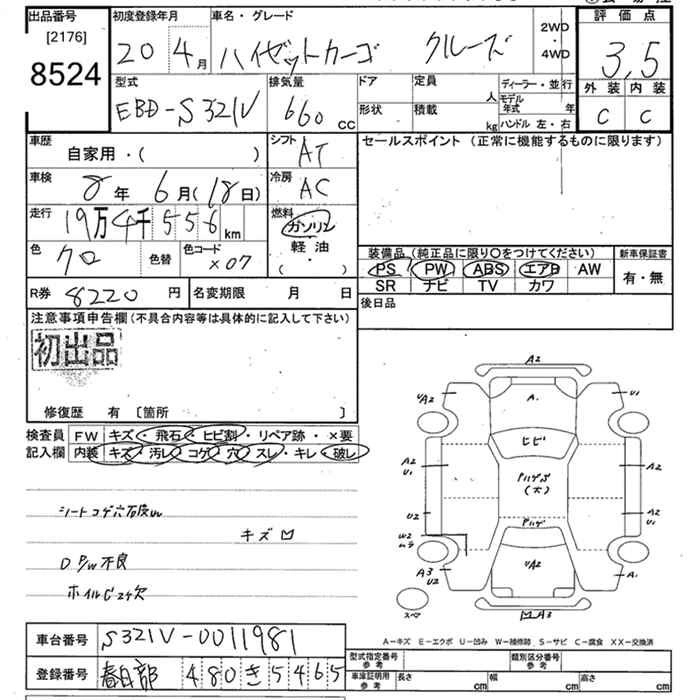 出品番号 初度登録年月 車名・グレード 2WD 評価点
[2176] ・
8524 20 4月 ハイゼットカーゴ クルーズ 4WD 3,5
型式 排気量 ドア 定員 ディーラー・並行 外装 内装
EBD-S321V 660 CC 形状 積載 人 kg モデル年式 年 ハンドル 左・右 C C
車歴 シフト セールスポイント (正常に機能するものに限ります)
自家用・( ) AT
車検 8年 6月(18日) 冷房 AC
走行 19万4千556km 燃料 ガソリン
色 クロ 色替 色コード X07 軽油
( ・ )
装備品 (純正品に限り○をつけてください) 新車保証書
PS PW ABS エアB AW 有・無
SR ナビ TV カワ
R券 8220円 名変期限 月 日 後日品
注意事項申告欄(不具合内容等は具体的に記入して下さい)
初出品
修復歴 有 〔箇所 〕
検査員 FW キズ・飛石・ヒビ割・リペア跡・×要
記入欄 内装 キズ・汚レ・コゲ・穴・スレ・キレ・破レ
キズ
D P/W不良
A2
UA2 A. U1
ヒビ
A2 A2
U1
(大)
U2 A2
U1
W2
UA2
A3 A1
U2
スペア
A3
A-キズ E-エクボ U-凹み W-補修跡 S-サビ C-腐食 XX-交換済
車台番号 S321V-0011981
登録番号 春日部 480き5465
型式指定番号 参考 類別区分番号 参考
車庫証明用 参考 長さ cm 幅 cm 高さ cm